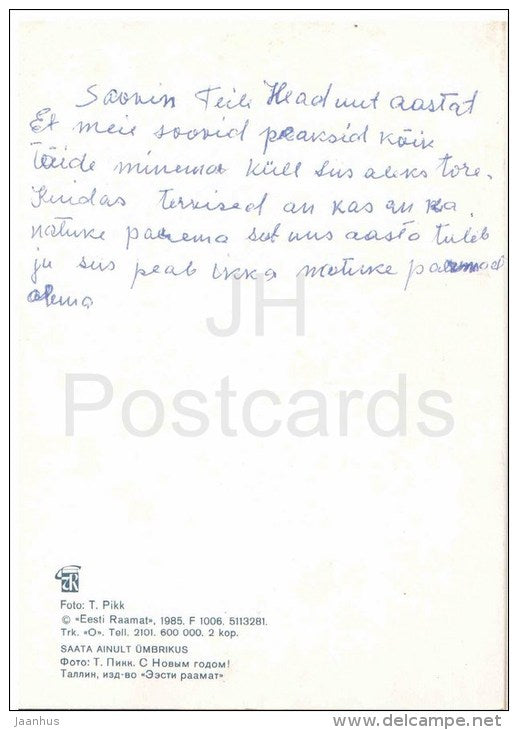 Soovin Teile Head uut aastat
Et meie soovid peaksid kõik
täide minema küll siis oleks tore.
Kuidas tervised on kas on ka
natuke parema sest uus aasta tuleb
ju siis peab ikka natuke paremad
olema
JH
Postcards
Foto: T. Pikk
© «Eesti Raamat», 1985. F 1006. 5113281.
Trk. «O». Tell. 2101. 600 000. 2 kop.
SAATA AINULT ÜMBRIKUS
Фото: Т. Пикк. С Новым годом!
Таллин, изд-во «Ээсти раамат»
jaanhus
www.delcampe.net